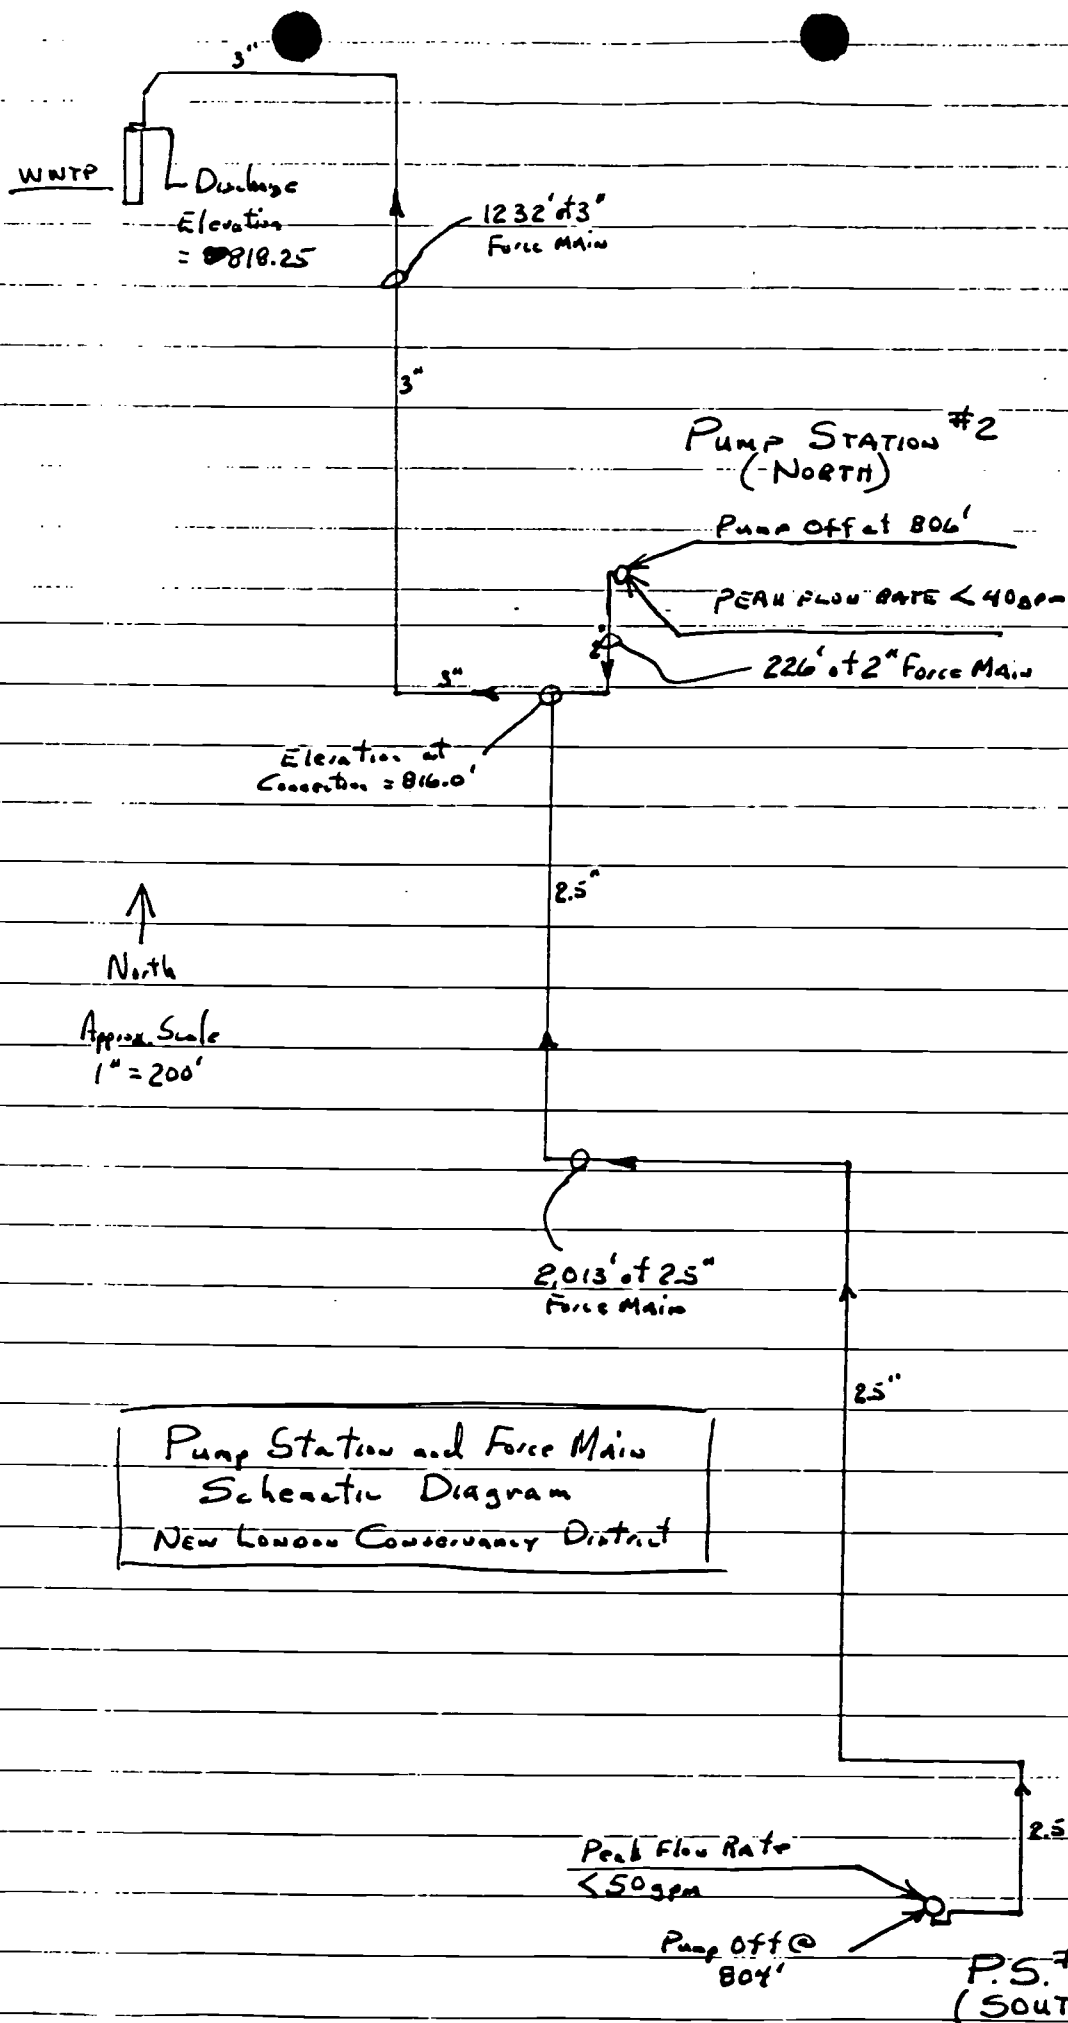 3"
WWTP
Discharge
Elevation
= 818.25
1232' of 3"
Force Main
3"
PUMP STATION #2
(NORTH)
Pump Off at 806'
PEAK FLOW RATE < 40gpm
2"
226' of 2" Force Main
3"
Elevation at
Connection = 816.0'
2.5"
North
Approx. Scale
1" = 200'
2,013' of 2.5"
Force Main
2.5"
Pump Station and Force Main
Schematic Diagram
NEW LONDON CONSERVANCY District
2.5
Peak Flow Rate
<50gpm
Pump Off @
804'
P.S. #
(SOUT